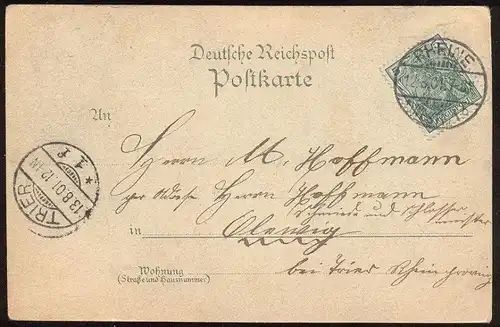 Deutsche Reichspost
Postkarte
RHEINE
8.01.
An
Herrn M. Hoffmann
per Adresse Herrn Hoffmann
Schmiede und Schlosser
meister
in Olewig
bei Trier Rheinprovinz
Wohnung
(Straße und Hausnummer)
TRIER
13.8.01.12-1N
* 1 f *